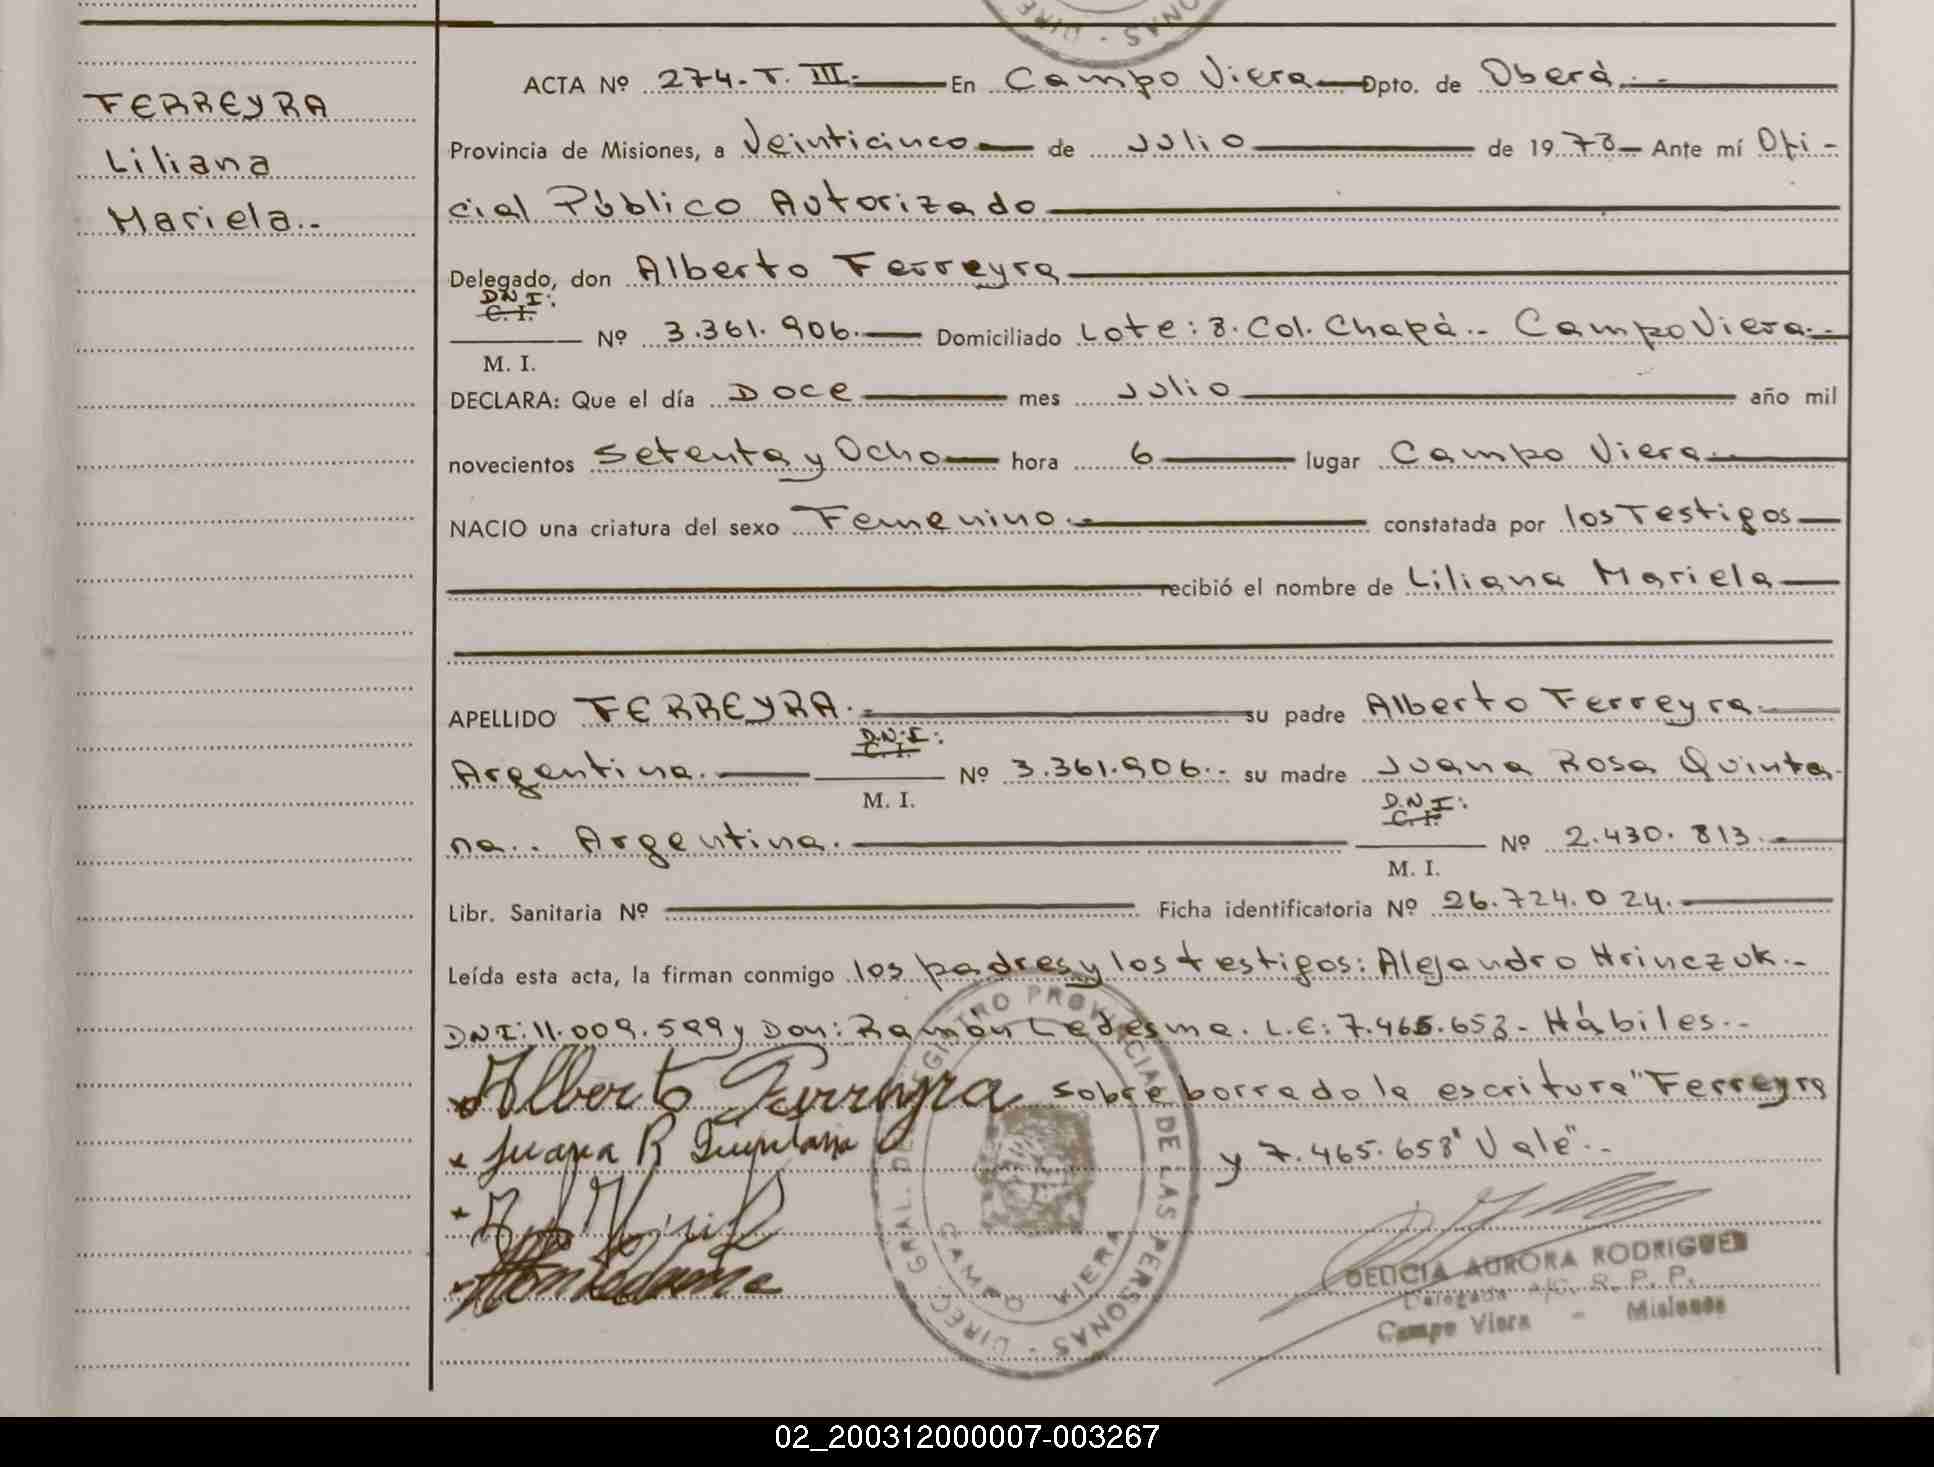 FERREYRA
Liliana
Mariela.-
ACTA Nº 274-T. III.- En Campo Viera Dpto. de Oberá.-
Provincia de Misiones, a Veinticinco de Julio de 1978 Ante mí Ofi-
cial Público Autorizado
Delegado, don Alberto Ferreyra
D N I:
C. I.
Nº 3.361.906. Domiciliado Lote: 8. Col. Chapá.- Campo Viera.-
M. I.
DECLARA: Que el día Doce mes Julio año mil
novecientos Setenta y Ocho hora 6 lugar Campo Viera.
NACIO una criatura del sexo Femenino.- constatada por los Testigos
recibió el nombre de Liliana Mariela
APELLIDO FERREYRA.- su padre Alberto Ferreyra
D.N.I:
C. I.
Argentina. Nº 3.361.906.- su madre Juana Rosa Quinta-
M. I.
D.N.I:
C. I.
na.. Argentina. Nº 2.430.813.-
M. I.
Libr. Sanitaria Nº Ficha identificatoria Nº 26.724.024.
Leída esta acta, la firman conmigo los padres y los testigos: Alejandro Hrinczuk.-
DNI: 11.009.599 y Don: Ramón Ledesma. L.E: 7.465.658- Hábiles.-
Alberto Ferreyra sobre borrado la escritura "Ferreyra
Juana R Quintana y 7.465.658" Vale".-
DIREC. GRAL. DE REGISTRO PROVINCIAL DE LAS PERSONAS -
CAMPO VIERA
DELICIA AURORA RODRIGUEZ
Delegada A/C. R. P. P.
Campo Viera - Misiones
02_200312000007-003267